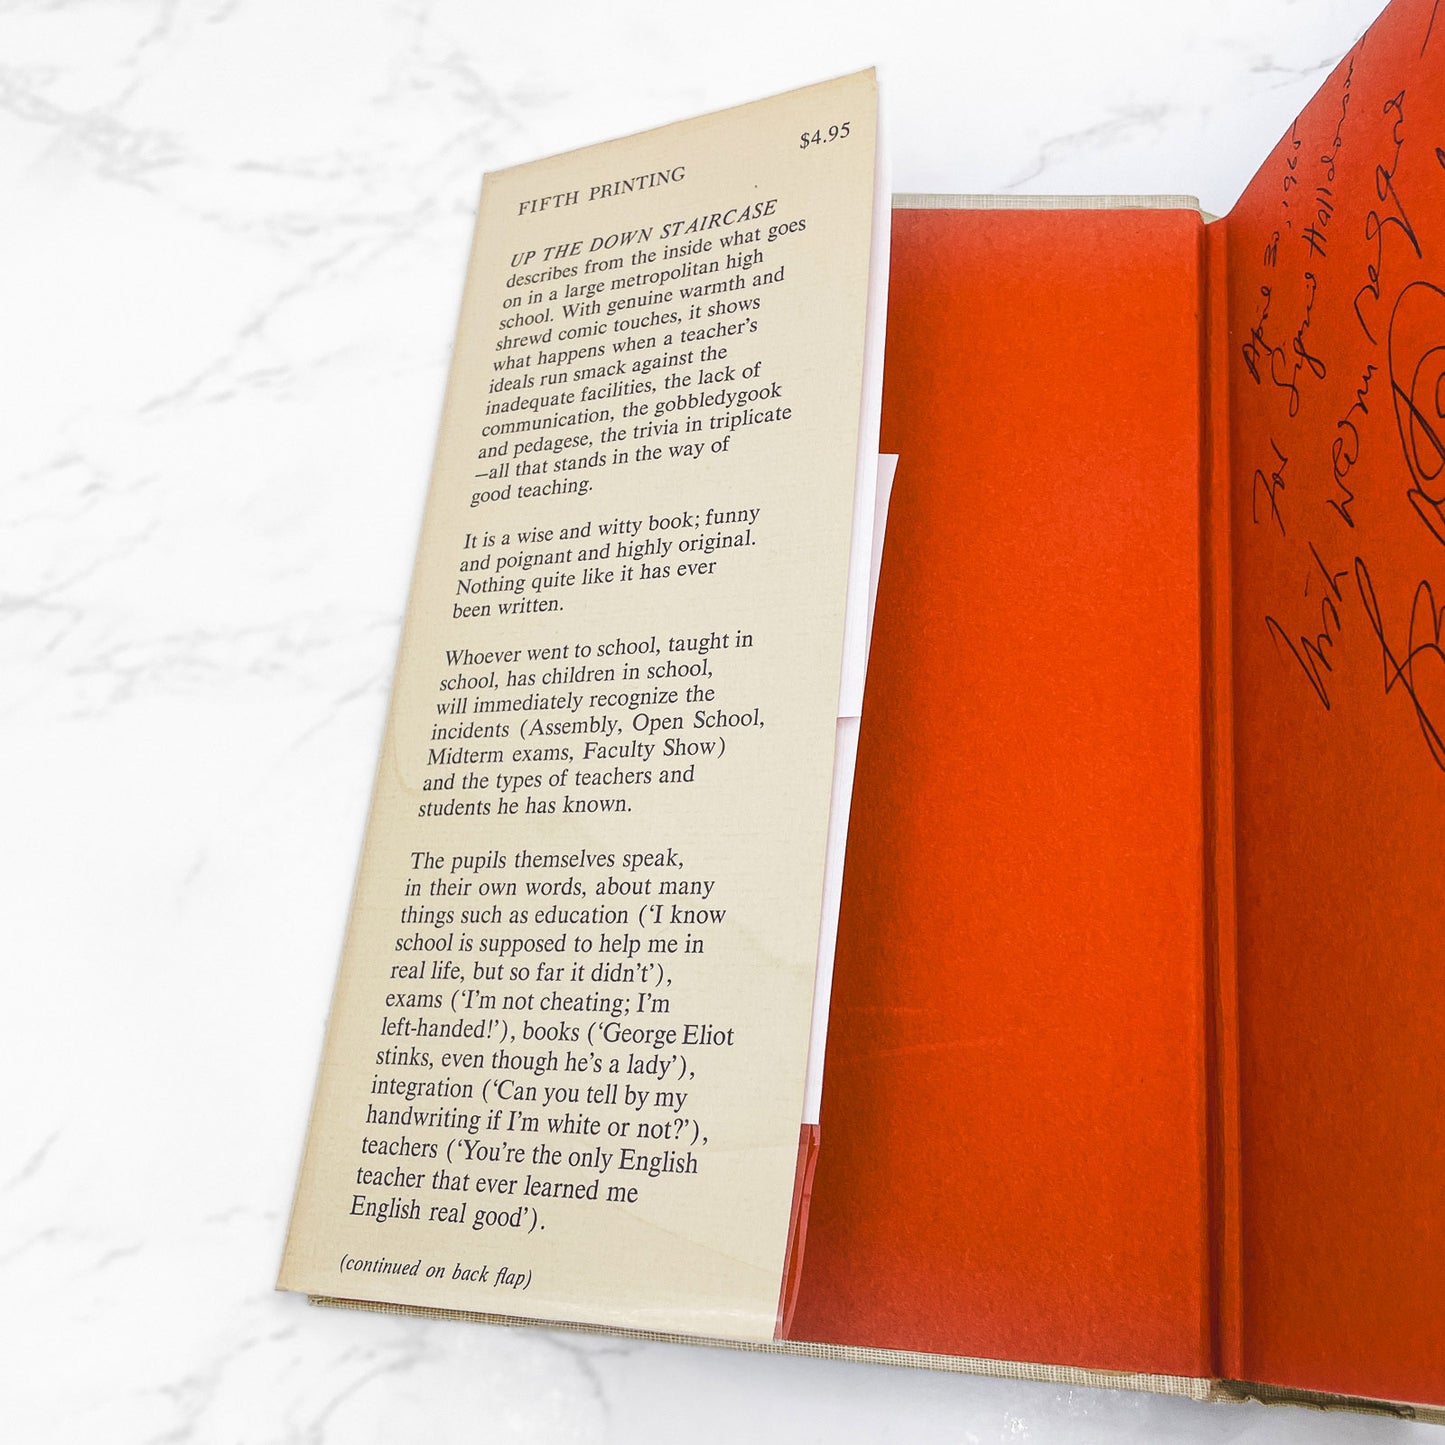 $4.95
FIFTH PRINTING
UP THE DOWN STAIRCASE
describes from the inside what goes
on in a large metropolitan high
school. With genuine warmth and
shrewd comic touches, it shows
what happens when a teacher's
ideals run smack against the
inadequate facilities, the lack of
communication, the gobbledygook
and pedagese, the trivia in triplicate
—all that stands in the way of
good teaching.
It is a wise and witty book; funny
and poignant and highly original.
Nothing quite like it has ever
been written.
Whoever went to school, taught in
school, has children in school,
will immediately recognize the
incidents (Assembly, Open School,
Midterm exams, Faculty Show)
and the types of teachers and
students he has known.
The pupils themselves speak,
in their own words, about many
things such as education ('I know
school is supposed to help me in
real life, but so far it didn't'),
exams ('I'm not cheating; I'm
left-handed!'), books ('George Eliot
stinks, even though he's a lady'),
integration ('Can you tell by my
handwriting if I'm white or not?'),
teachers ('You're the only English
teacher that ever learned me
English real good').
(continued on back flap)
April 30, 1965
For Sigurd Halldorson—
With warm regards—